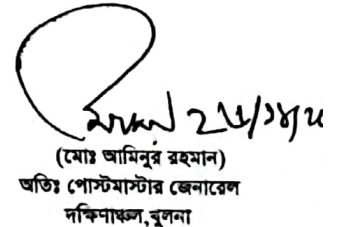 (মোঃ আমিনুর রহমান)
অতিঃ পোস্টমাস্টার জেনারেল
দক্ষিণাঞ্চল, খুলনা